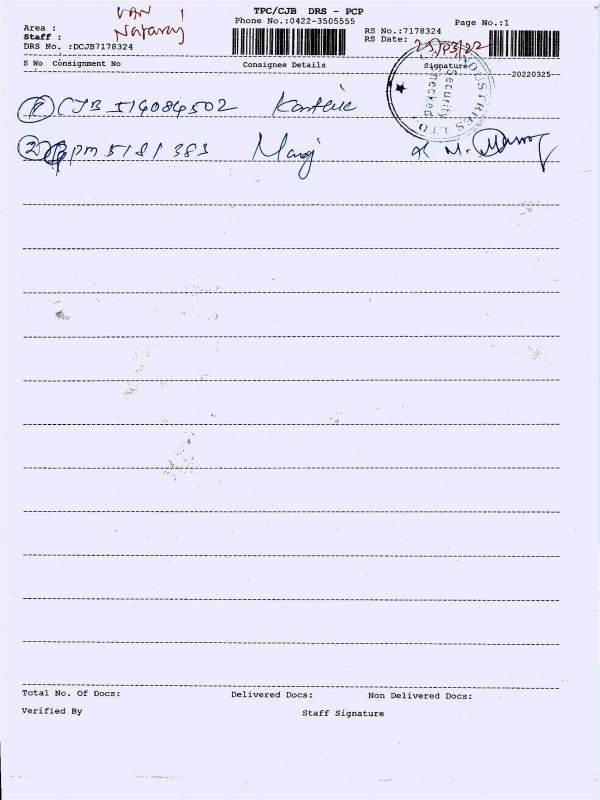 TPC/CJB DRS - PCP
VAN 1
Area :
Phone No.:0422-3505555
Page No.:1
Staff : Nataraj
RS No.:7178324
DRS No. :DCJB7178324
RS Date: 25/03/22
S No Consignment No Consignee Details Signature
--20220325--
INDUSTRIES LTD
Security
Checked
1 CJB 514084502
2 pm 5181383 Manoj
Total No. Of Docs: Delivered Docs: Non Delivered Docs:
Verified By Staff Signature